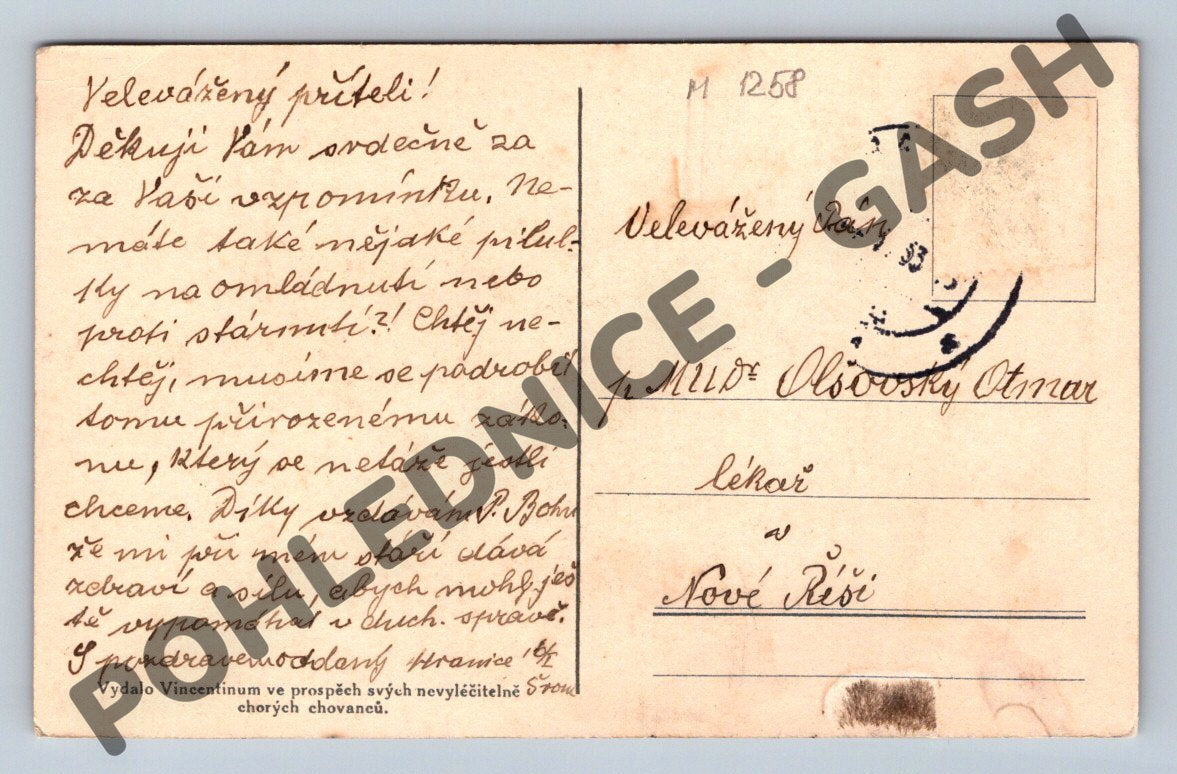 Velevážený příteli!
Děkuji Vám srdečně za
za Vaši vzpomínku. Ne-
máte také nějaké pilul-
ky na omládnutí nebo
proti stárnutí?! Chtěj ne-
chtěj, musíme se podrobit
tomu přirozenému záko-
nu, který se netáže jestli
chceme. Díky vzdávám P. Bohu
že mi při mém stáří dává
zdraví a sílu, abych mohl ješ
tě vypomáhat v duch. správě.
S pozdravem oddaný Hranice 6/I
Vydalo Vincentinum ve prospěch svých nevyléčitelně
chorých chovanců.
M 1258
Velevážený Pán
p. MUDr Olsovský Otmar
lékař
v
Nové Říši
POHLEDNICE - GASH